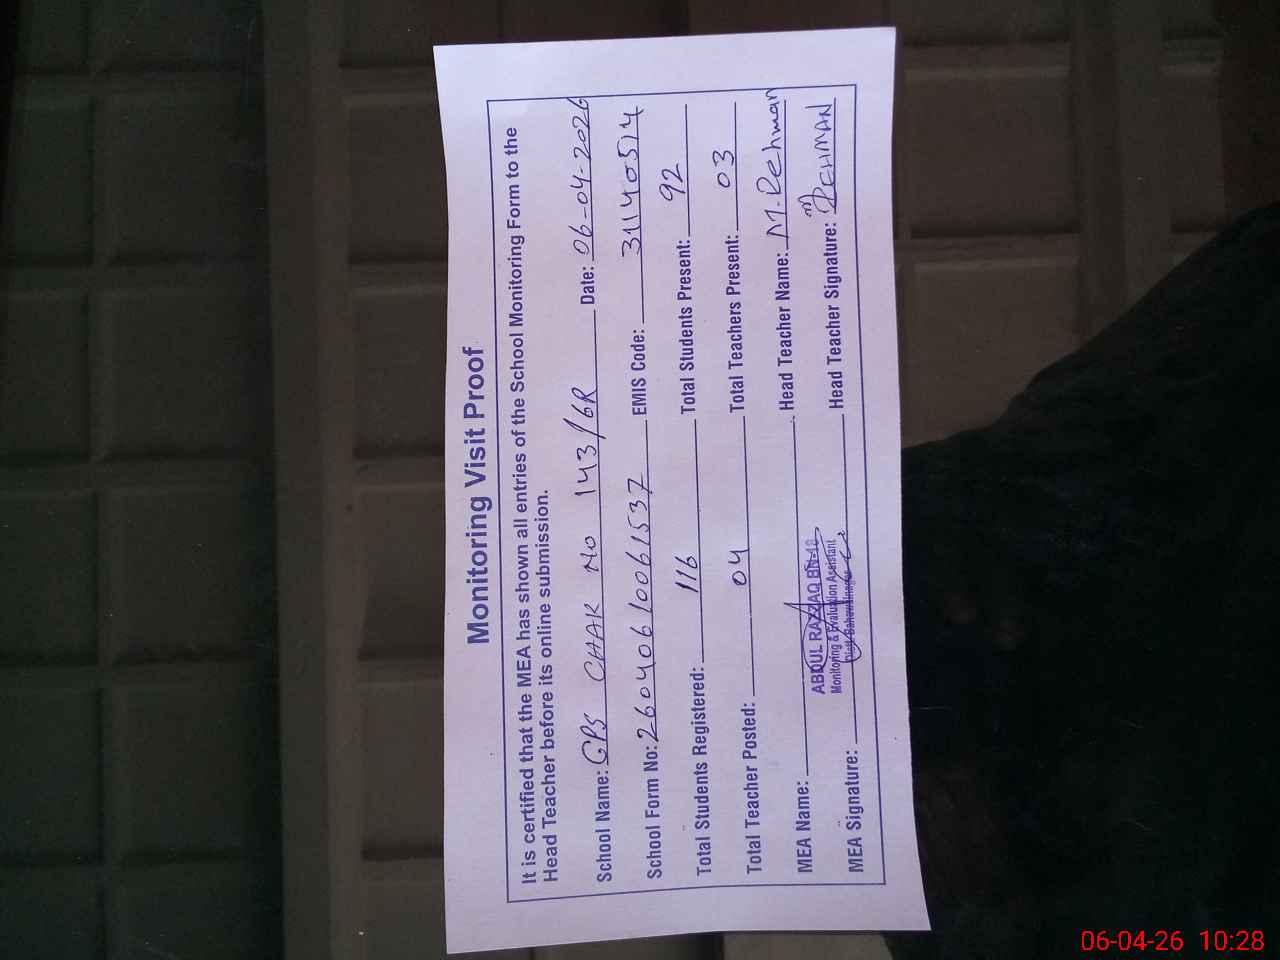 Monitoring Visit Proof
It is certified that the MEA has shown all entries of the School Monitoring Form to the
Head Teacher before its online submission.
School Name: GPS CHAK No 143/6R Date: 06-04-2026
School Form No: 26040610061537 EMIS Code: 31140514
Total Students Registered: 116 Total Students Present: 92
Total Teacher Posted: 04 Total Teachers Present: 03
MEA Name: Head Teacher Name: M-Rehman
ABDUL RAZZAQ
Monitoring & Evaluation Assistant
Distt Bahawalnagar
MEA Signature: Head Teacher Signature: REHMAN
06-04-26 10:28